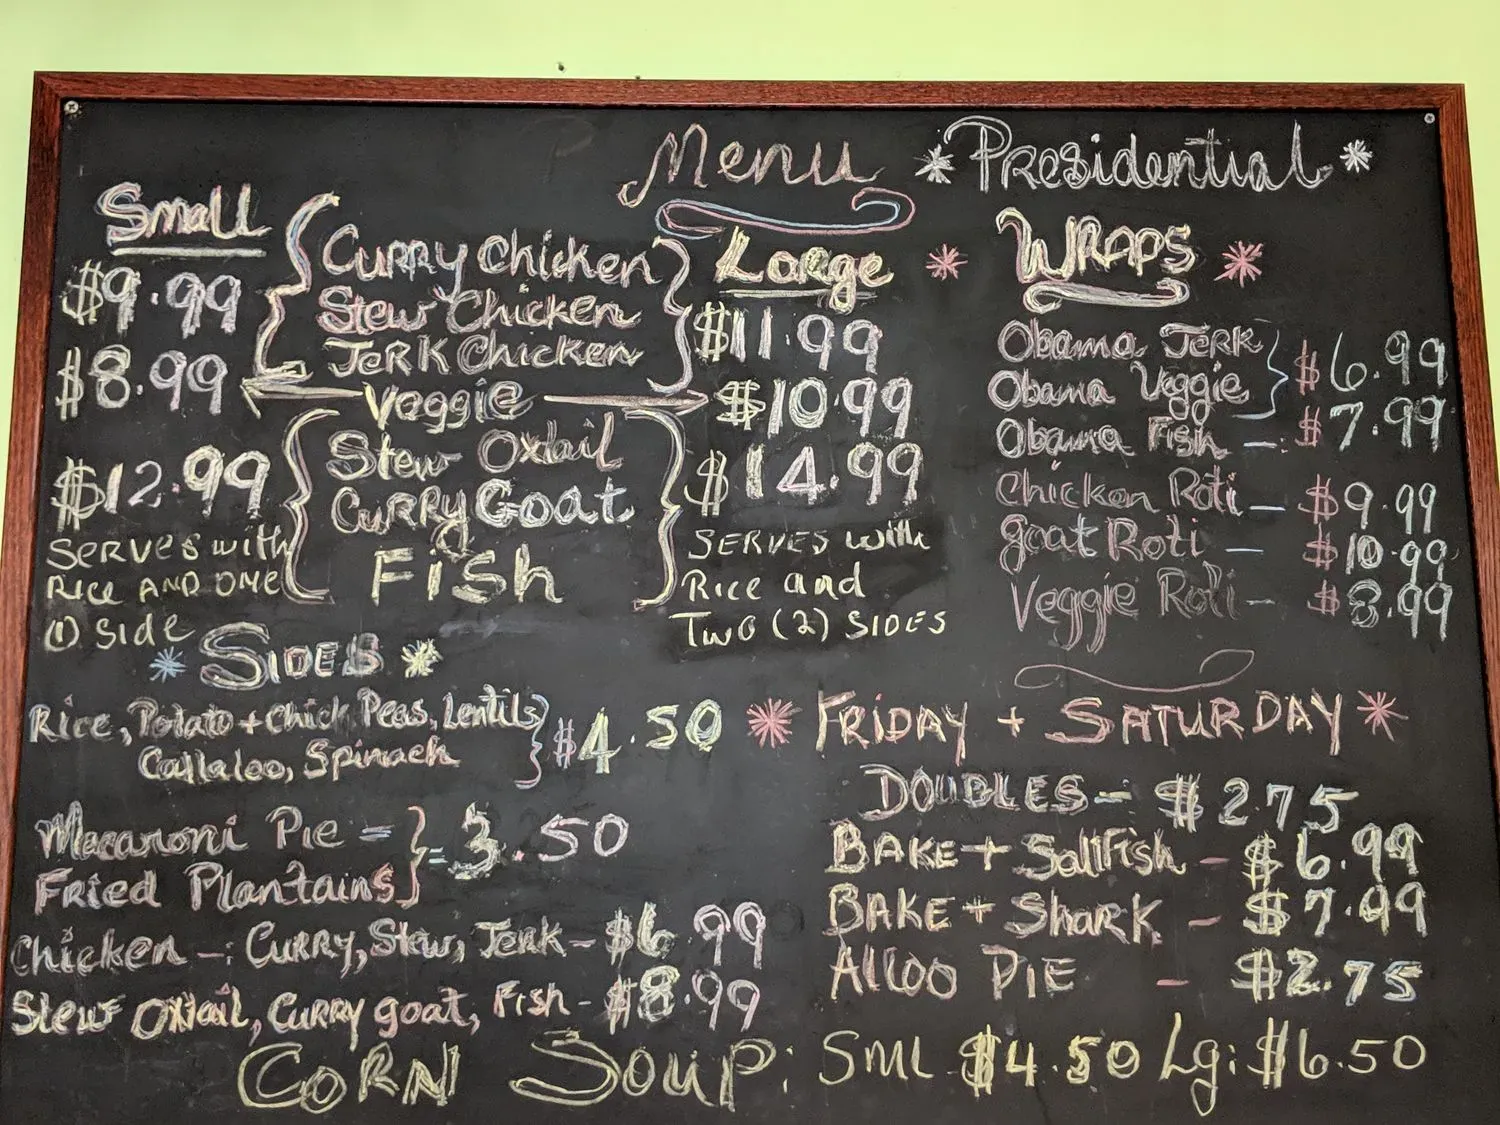 Menu
* Presidential *
Small
$9.99
$8.99
$12.99
SERVES with
RICE AND ONE
(1) Side
Curry Chicken
Stew Chicken
JERK Chicken
Veggie
Stew Oxtail
CURRY Goat
Fish
Large
$11.99
$10.99
$14.99
SERVES with
Rice and
TWO (2) SIDES
* WRAPS *
Obama JERK
Obama Veggie } $6.99
Obama Fish - : $7.99
Chicken Roti - $9.99
goat Roti - $10.99
Veggie Roti - $8.99
* SIDES *
Rice, Potato + Chick Peas, Lentils
Callaloo, Spinach } $4.50
Macaroni Pie =
Fried Plantains } = 3.50
Chicken -: Curry, Stew, Jerk - $6.99
Stew Oxtail, Curry goat, Fish - $8.99
* FRIDAY + SATURDAY *
DOUBLES - $2.75
BAKE + Saltfish - $6.99
BAKE + ShARK - $7.99
Alloo PIE - $2.75
CORN SOUP: SML $4.50 Lg: $6.50